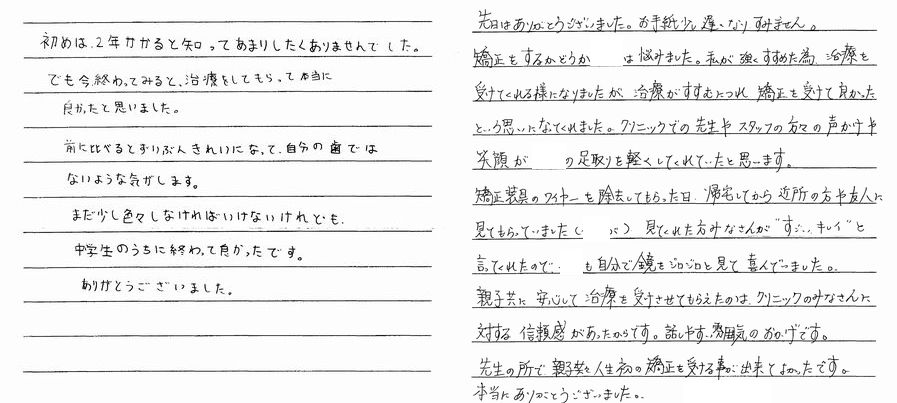 初めは、2年かかると知ってあまりしたくありませんでした。
でも今、終わってみると、治療をしてもらって本当に
良かったと思いました。
前に比べるとずいぶんきれいになって、自分の歯では
ないような気がします。
まだ少し色々しなければいけないけれども、
中学生のうちに終わって良かったです。
ありがとうございました。
先日はありがとうございました。お手紙少し遅くなりすみません。
矯正をするかどうか は悩みました。私が強くすすめた為、治療を
受けてくれる様になりましたが、治療がすすむにつれ、矯正を受けて良かった
という思いになってくれました。クリニックでの先生やスタッフの方々の声かけや
笑顔が の足取りを軽くしてくれていたと思います。
矯正装具のワイヤーを除去してもらった日、帰宅してから近所の方や友人に
見てもらっていました( ) 見てくれた方みなさんが"すごい、キレイ"と
言ってくれたので、 も自分で鏡をジロジロと見て喜んでいました。
親子共に安心して治療を受けさせてもらえたのは、クリニックのみなさんに
対する信頼感があったからです。話しやすい雰囲気のおかげです。
先生の所で親子共々人生初の矯正を受ける事が出来てよかったです。
本当にありがとうございました。